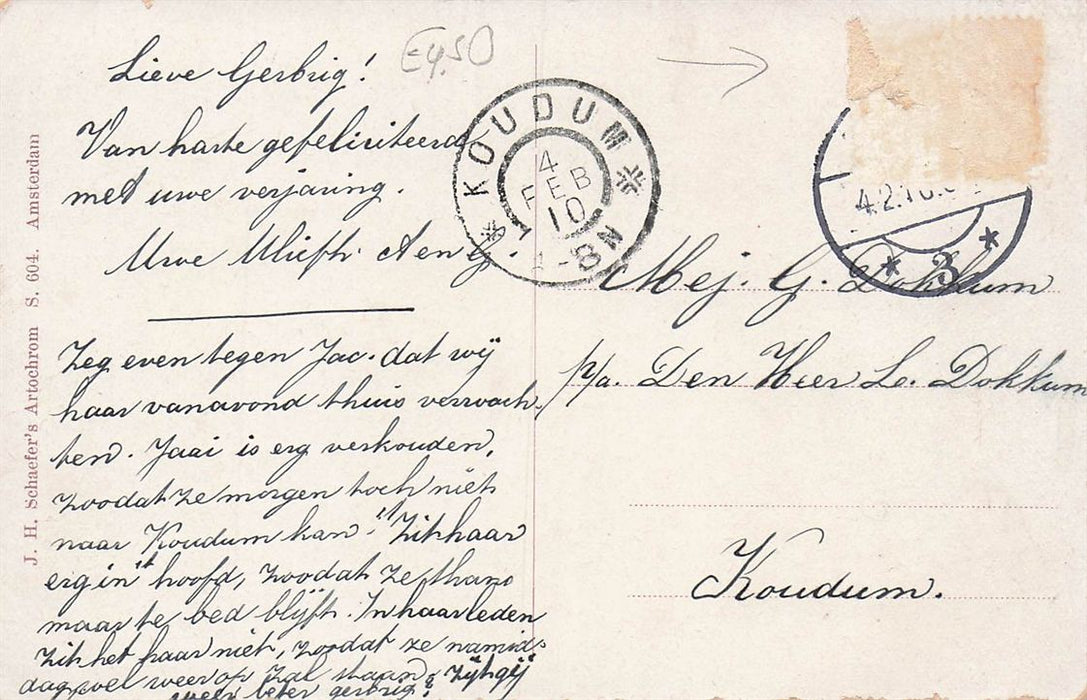 Lieve Gerbrig!
Van harte gefeliciteerd
met uwe verjaring.
Uwe
Zeg even tegen Jac. dat wij
haar vanavond thuis verwach
ten. Jaai is erg verkouden,
zoodat ze morgen toch niet
naar Koudum kan. 't Zit haar
erg in 't hoofd, zoodat ze thans
maar te bed blijft. In haar leden
zit het haar niet, zoodat ze namid-
dag wel weer op zal staan. Zijt gij
weer beter Gerbrig?
E4,50
KOUDUM
4
FEB
10
-8N
4.2.10.
3
Mej. G. Dokkum
p/a. Den Heer L. Dokkum
Koudum.
J. H. Schaefer's Artochrom S. 604. Amsterdam